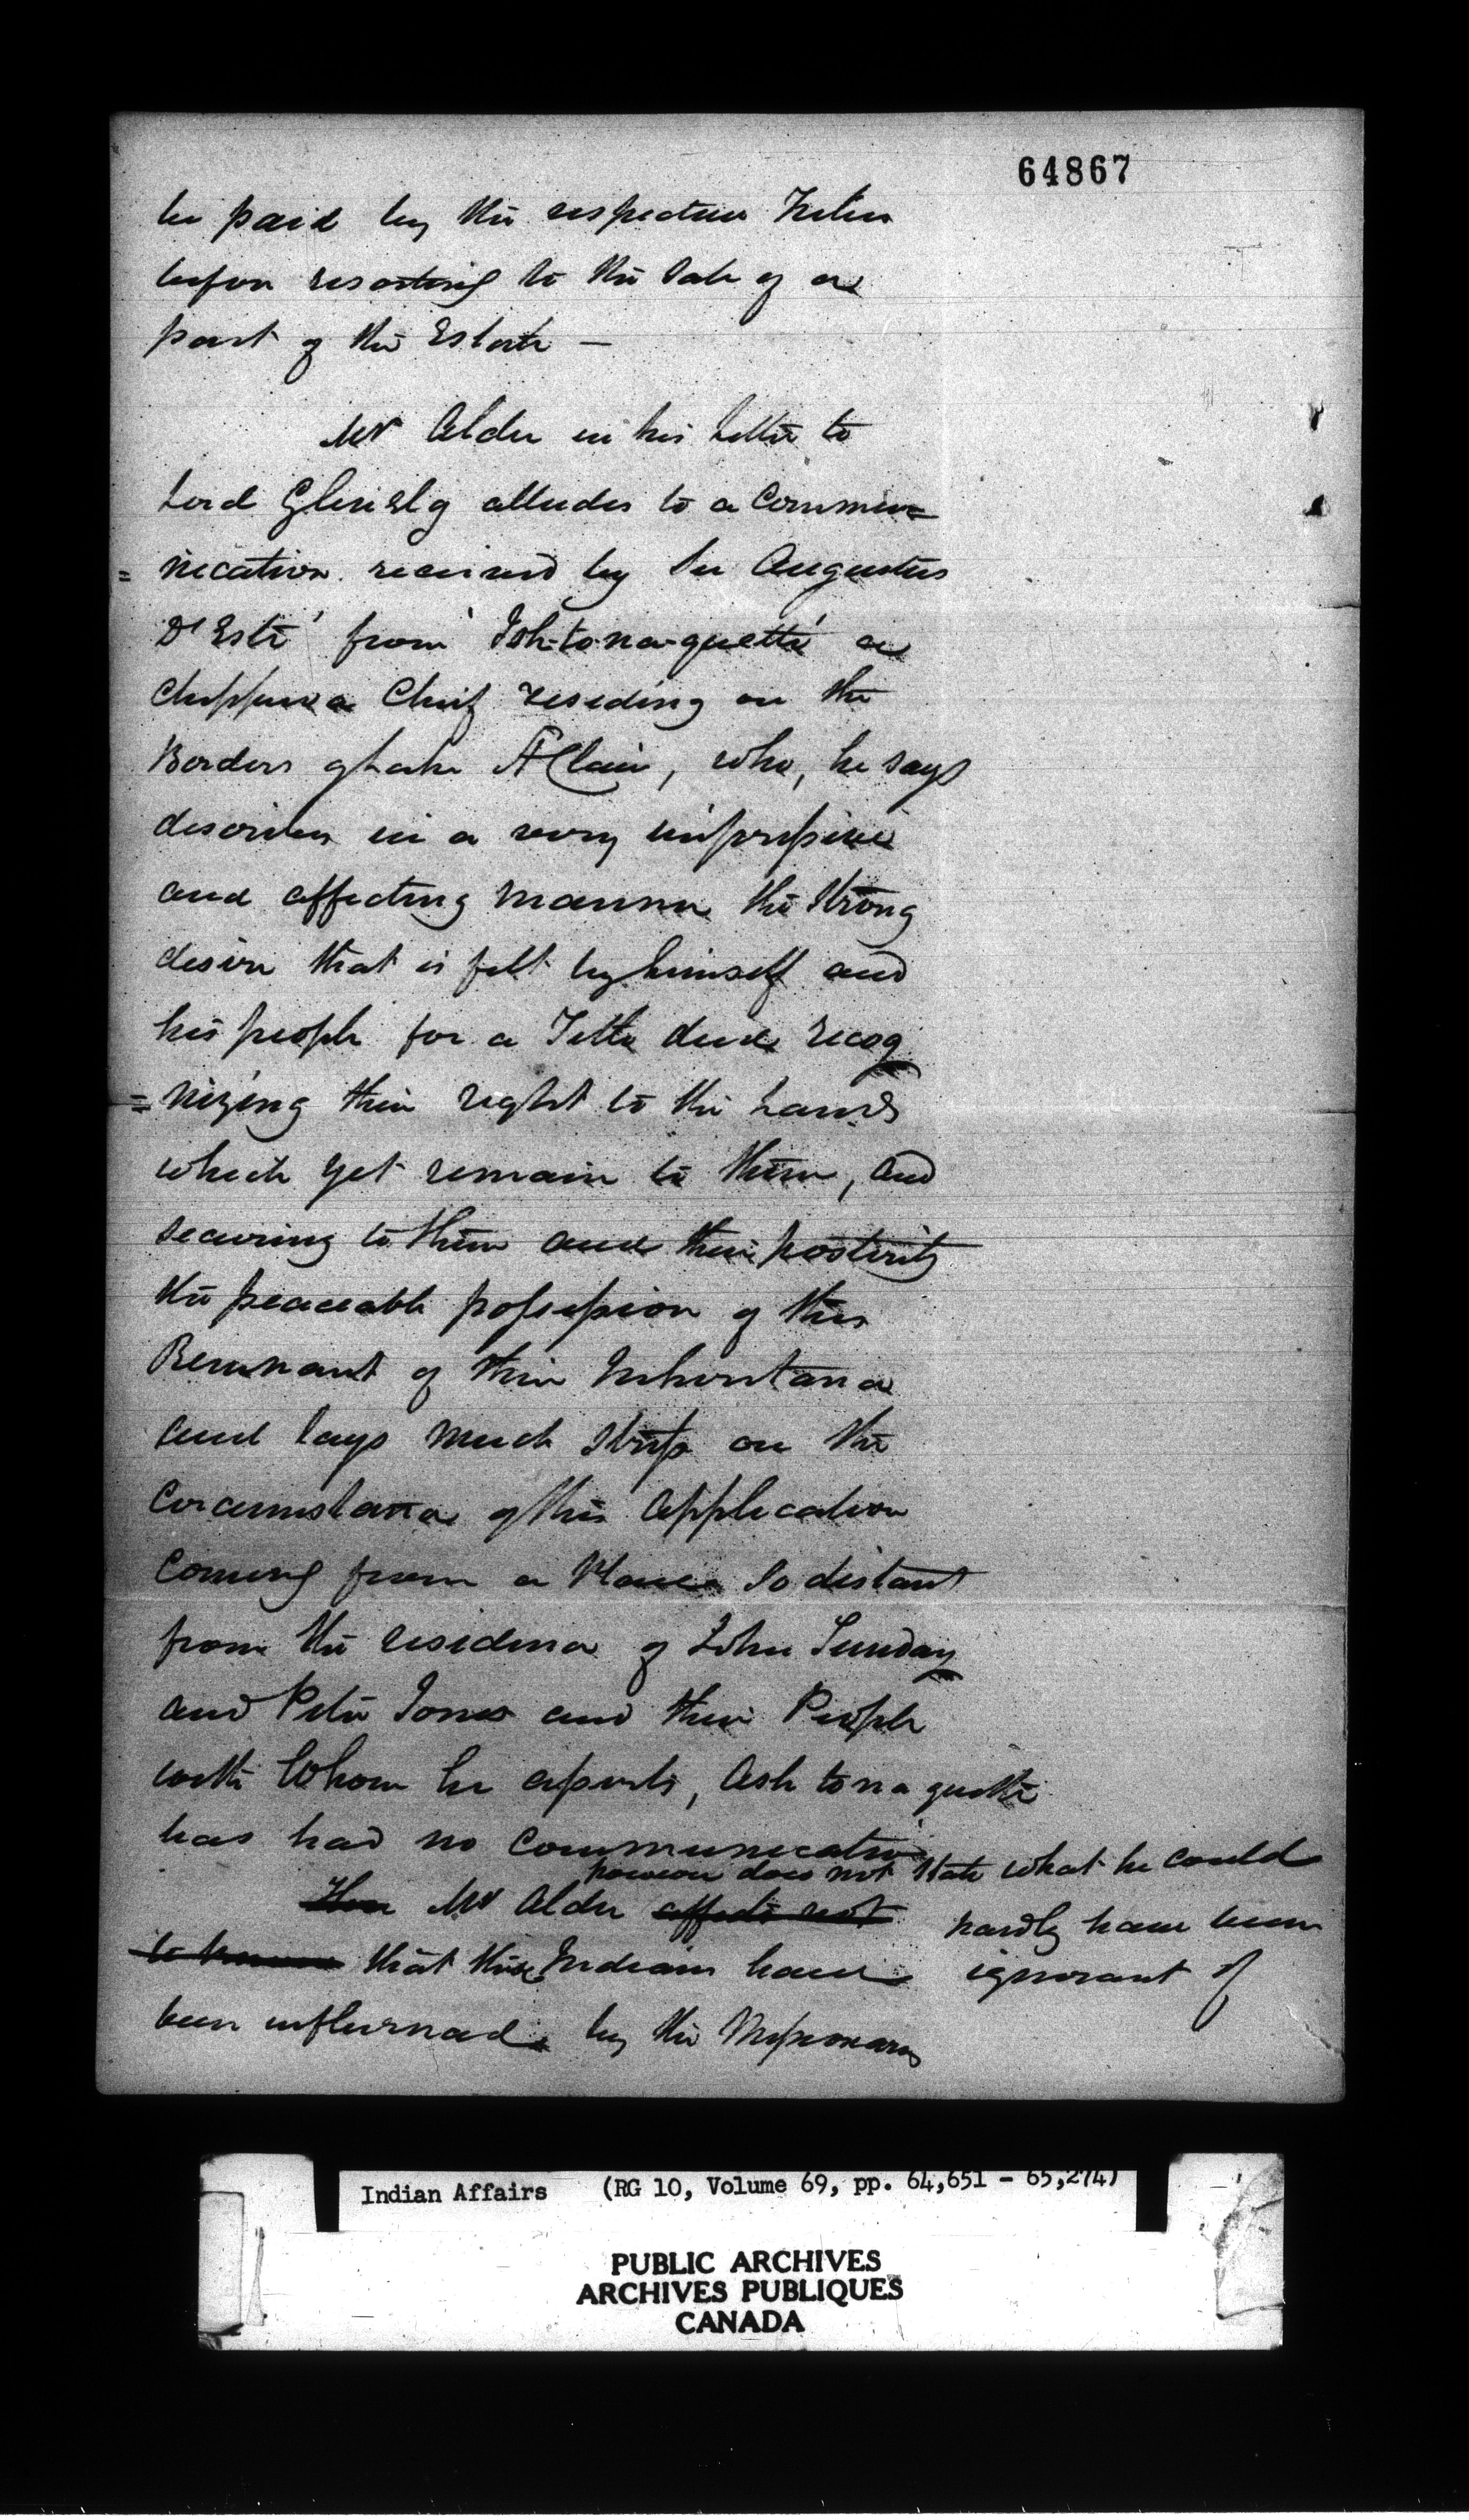 64867
be paid by the respective Tribes
before resorting to the Sale of a
part of the Estate —
Mr Alder in his letter to
Lord Glenelg alludes to a Commu=
=nication received by Sir Augustus
D'Esté from Ish-to-na-quetté a
Chippewa Chief residing on the
Borders of Lake St Clair, who, he says
describes in a very impressive
and affecting manner the strong
desire that is felt by himself and
his people for a Title deed recog
=nizing their right to the Lands
which yet remain to them, and
securing to them and their posterity
the peaceable possession of this
Remnant of their Inheritance
and lays much stress on the
Circumstance of this Application
Coming from a Place so distant
from the residence of John Sunday
and Peter Jones and their People
with Whom he asserts, Ash to na quette
has had no Communication
however does not State what he could
Mr Alder affects not hardly have been
to know that these Indians have ignorant of
been influenced by the Missionary
Indian Affairs (RG 10, Volume 69, pp. 64,651 - 65,274)
PUBLIC ARCHIVES
ARCHIVES PUBLIQUES
CANADA